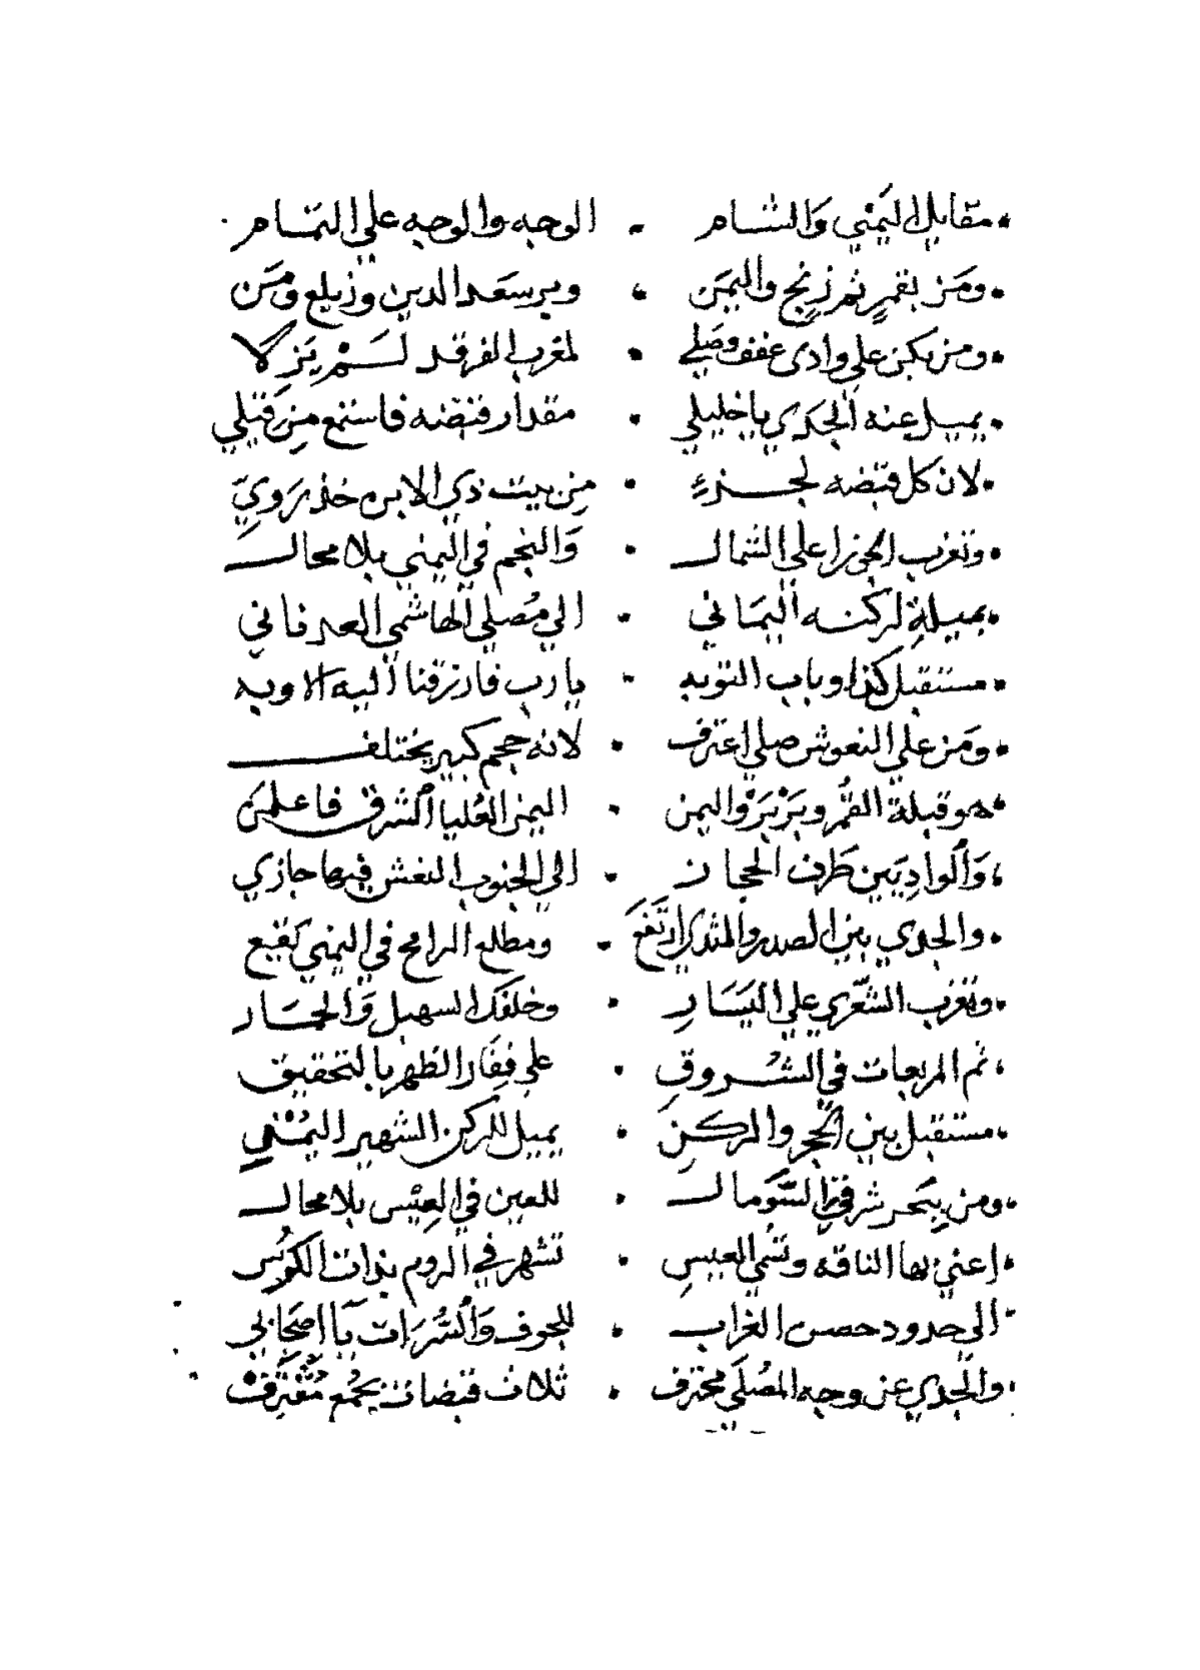 مقابل اليمني والشام . الوجه والوجه علي التمام
ومن بقمرٍ ثم زنج واليمن . وبر سعد الدين وزيلع ومن
ومن يكن علي وادي عفف وصلي . لمغرب الفرقد لم يزلا
يميل عنه الجدي يا خليلي . مقدار قبضه فاستمع من قيلي
لان كل قبضه لجزءٍ . من بيت ذي الابره خذ روي
وتغرب الجوزا علي الشمال . والنجم في اليمني بلا محال
بميلةٍ لركنه اليماني . الي مصلي الهاشمي العدناني
مستقبل كذا وباب التوبه . يا رب فارزقنا اليه الاوبه
ومن علي النعوش صلي اعترف . لانه حجم كبير يختلف
هو قبلة القُمُر وبَرْبَرْ واليمن . اليمن العُليا الشرق فاعلمن
والواديين طرف الحجاز . الي الجنوب النعش فيها حازي
والجدي بين الصدر والثدي ارتفع . ومطلع الرامح في اليمني يقع
وتغرب الشعري علي اليسار . وخلفك السهيل والحمار
ثم المربعات في الشروقِ . علي فقار الظهر بالتحقيق
مستقبل بين الحجر والركن . يميل للركن الشهير اليمني
ومن ببحر شرقي السومال . للعين في العيس بلا محال
اعني بها الناقه وتسمي العيسِ . تشهر في الروم بذات الكرسي
الي حدود حصن الغراب . للجوف والسرات يا اصحابي
والجدي عن وجه المصلي محترف . ثلاث قبضات بجمع مقترف